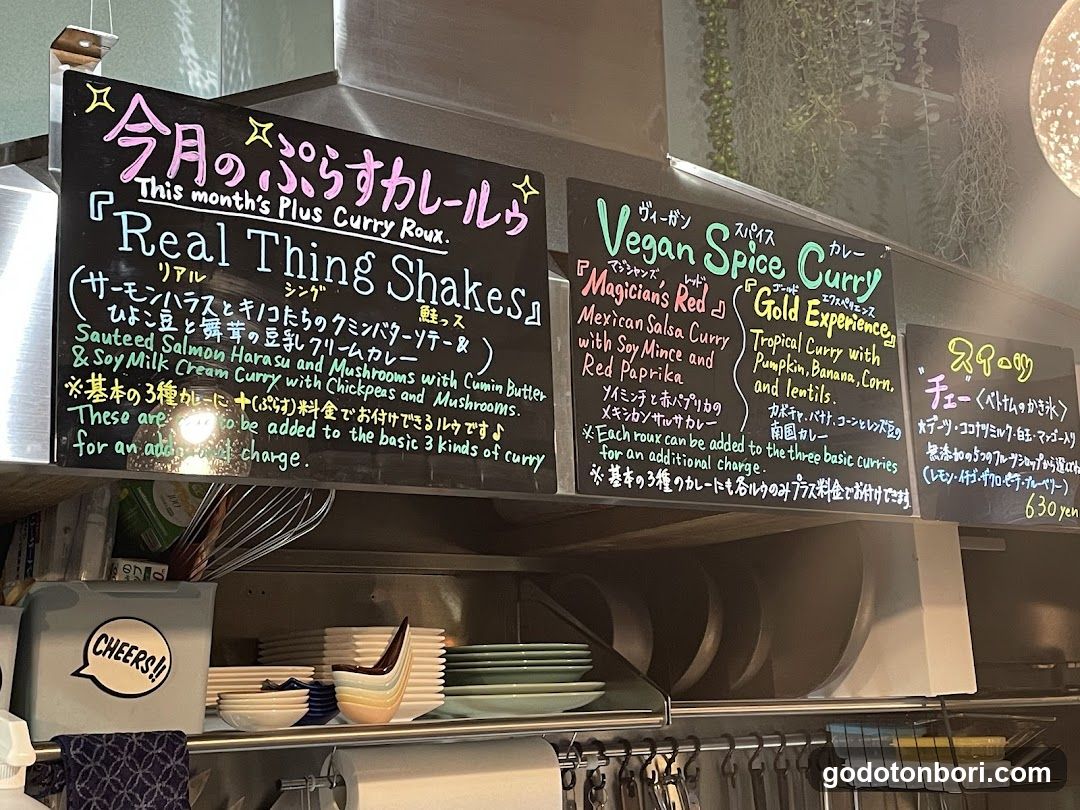 今月の ぷらすカレールゥ
This month's Plus Curry Roux.
『Real Thing Shakes』
リアル シング 鮭っス
(サーモンハラスとキノコたちのクミンバターソテー&
ひよこ豆と舞茸の豆乳クリームカレー)
Sauteed Salmon Harasu and Mushrooms with Cumin Butter
& Soy Milk Cream Curry with Chickpeas and Mushrooms.
※基本の3種カレーに +(ぷらす)料金でお付けできるルウです♪
These are to be added to the basic 3 kinds of curry
for an additional charge.
ヴィーガン スパイス カレー
Vegan Spice Curry
マジシャンズ レッド
『Magician's Red』
Mexican Salsa Curry
with Soy Mince and
Red Paprika
ソイミンチと赤パプリカの
メキシカンサルサカレー
ゴールド エクスペリエンス
『Gold Experience』
Tropical Curry with
Pumpkin, Banana, Corn.
and lentils.
カボチャ、バナナ、コーンとレンズ豆の
南国カレー
※Each roux can be added to the three basic curries
for an additional charge.
※基本の3種のカレーにも各ルウのみプラス料金でお付けできます
スイーツ
"チェー"〈ベトナムのかき氷〉
★デーツ・ココナツミルク・白玉・マンゴー入り
無添加の5つのフルーツシロップから選べ
(レモン・イチゴ・ザクロ・ピーチ・ブルーベリー)
630 yen
CHEERS!!
godotonbori.com